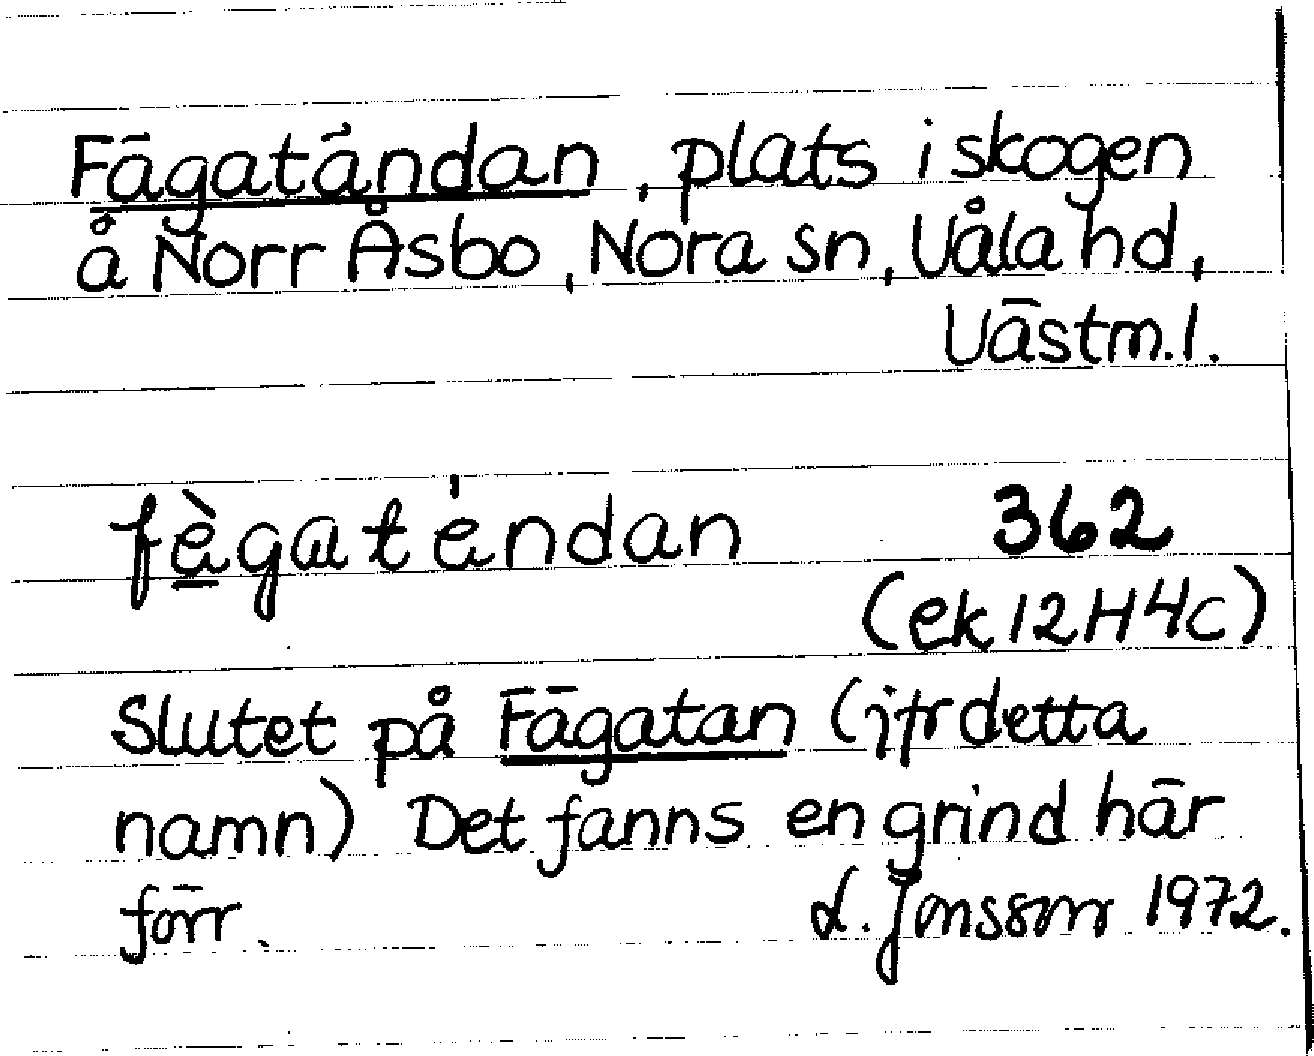 Fägatändan, plats i skogen
å Norr Åsbo, Nora sn, Våla hd,
Västm.l.
fègaténdan 362
(ek 12H4c)
Slutet på Fägatan (jfr detta
namn) Det fanns en grind här
förr. L. Jonsson 1972.